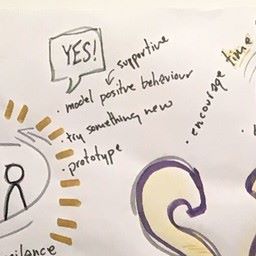 YES!
supportive
· model positive behaviour
· try something new
· prototype
· encourage time